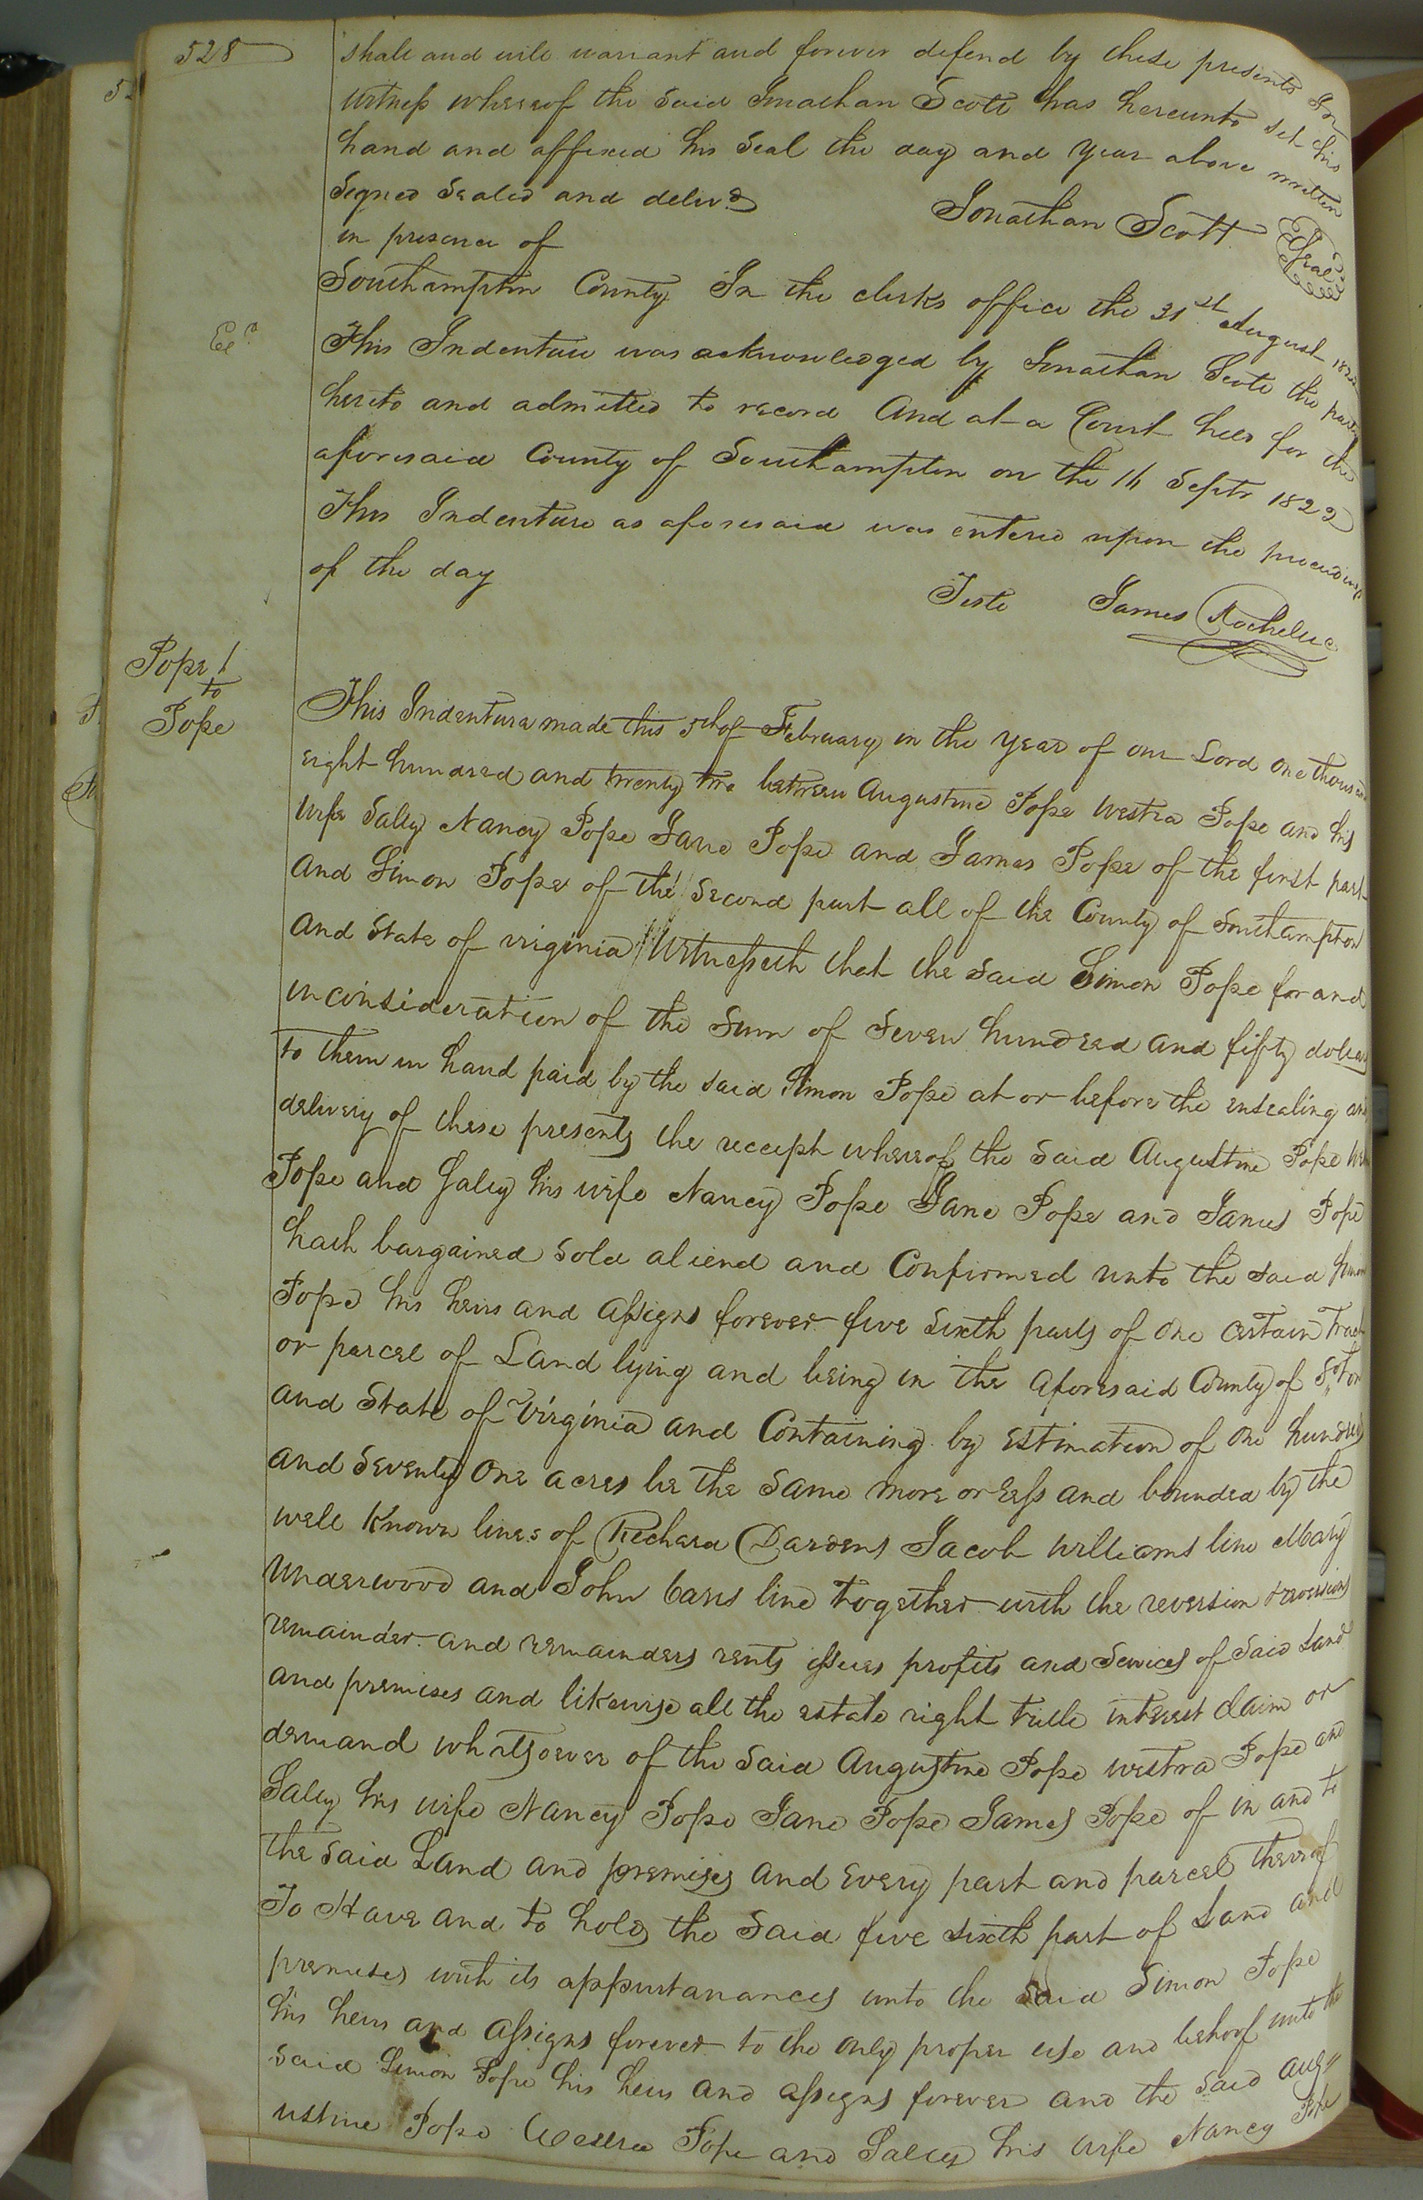 528
shall and will warrant and forever defend by these presents In
witness whereof the said Jonathan Scott has hereunto set his
hand and affixed his seal the day and year above written
Signed Sealed and delivd
in presence of
Jonathan Scott Seal
Southampton County In the clerks office the 31st August 1822
Exd
This Indenture was acknowledged by Jonathan Scott the party
hereto and admitted to record And at a Court held for the
aforesaid County of Southampton on the 16 Septr 1822
This Indenture as aforesaid was entered upon the proceedings
of the day
Teste James Rochelle
Pope
to
Pope
This Indenture made this 5th of February in the year of our Lord one thousand
eight hundred and twenty two between Augustine Pope Westra Pope and his
wife Sally Nancy Pope Jane Pope and James Pope of the first part
and Simon Pope of the second part all of the County of Southampton
and State of virginia Witnesseth that the said Simon Pope for and
in consideration of the sum of seven hundred and fifty dollars
to them in hand paid by the said Simon Pope at or before the ensealing and
delivery of these presents the receipt whereof the said Augustine Pope
Pope and Saley his wife Nancy Pope Jane Pope and James Pope
hath bargained sold aliend and Confirmed unto the said Simon
Pope his heirs and assigns forever five sixth parts of one certain Tract
or parcel of Land lying and being in the aforesaid County of S.ton
and State of Virginia and Containing by estimation of one hundred
and seventy one acres be the same more or less and bounded by the
well known lines of Richard Dardens Jacob Williams line Mary
Underwood and John line together with the reversion & reversions
remainder and remainders rents issues profits and services of said Land
and premises and likewise all the estate right title interest claim or
demand whatsoever of the said Augustine Pope westra Pope and
Saley his wife Nancy Pope Jane Pope James Pope of in and to
the said Land and premises and every part and parcel thereof
To Have and to hold the said five sixth part of Land and
premises with its appurtanances unto the said Simon Pope
his heirs and assigns forever to the only proper use and behoof unto the
said Simon Pope his heirs and assigns forever and the said aug
ustine Pope Westra Pope and Saley his wife Nancy Pope